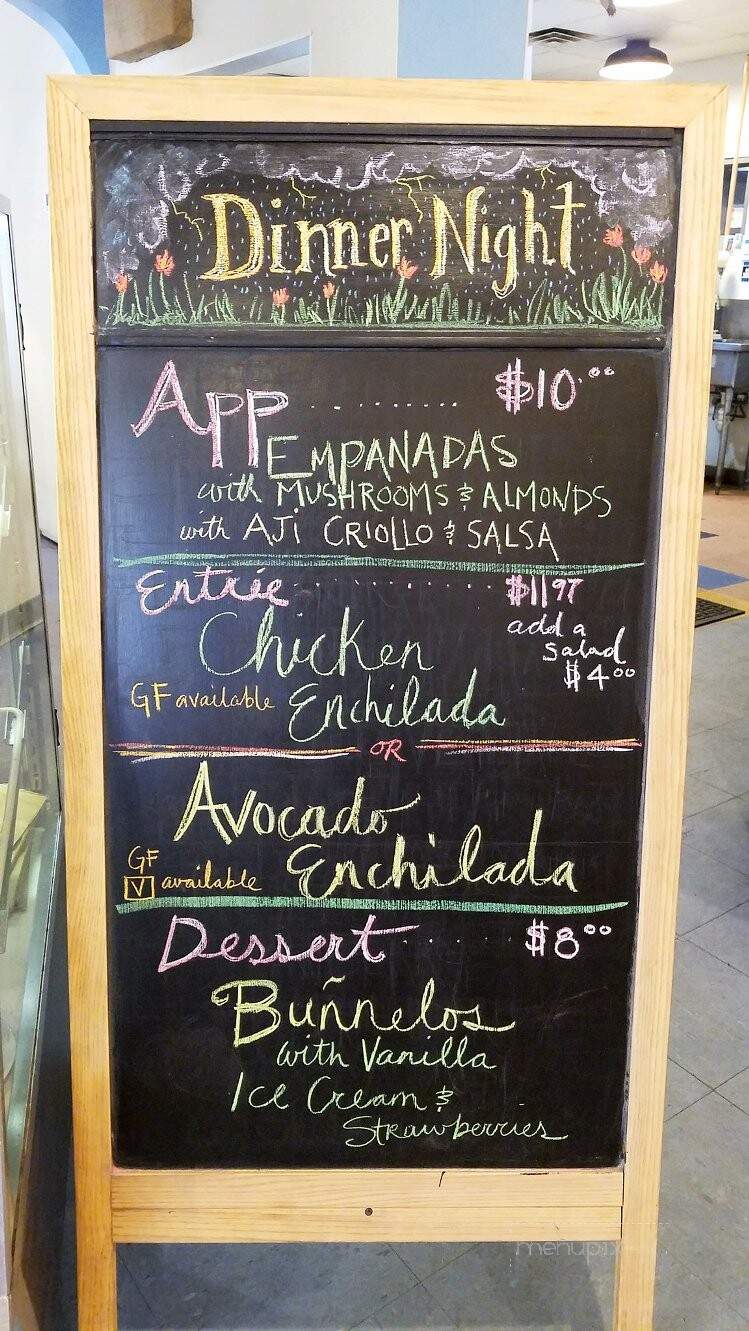 Dinner Night
App ......... $10.00
EMPANADAS
with MUSHROOMS & ALMONDS
with AJI CRIOLLO & SALSA
Entrie ....... $11.97
add a
salad
$4.00
Chicken
GF available
Enchilada
OR
Avocado
Enchilada
GF
V available
Dessert ..... $8.00
Buñnelos
with Vanilla
Ice Cream &
Strawberries